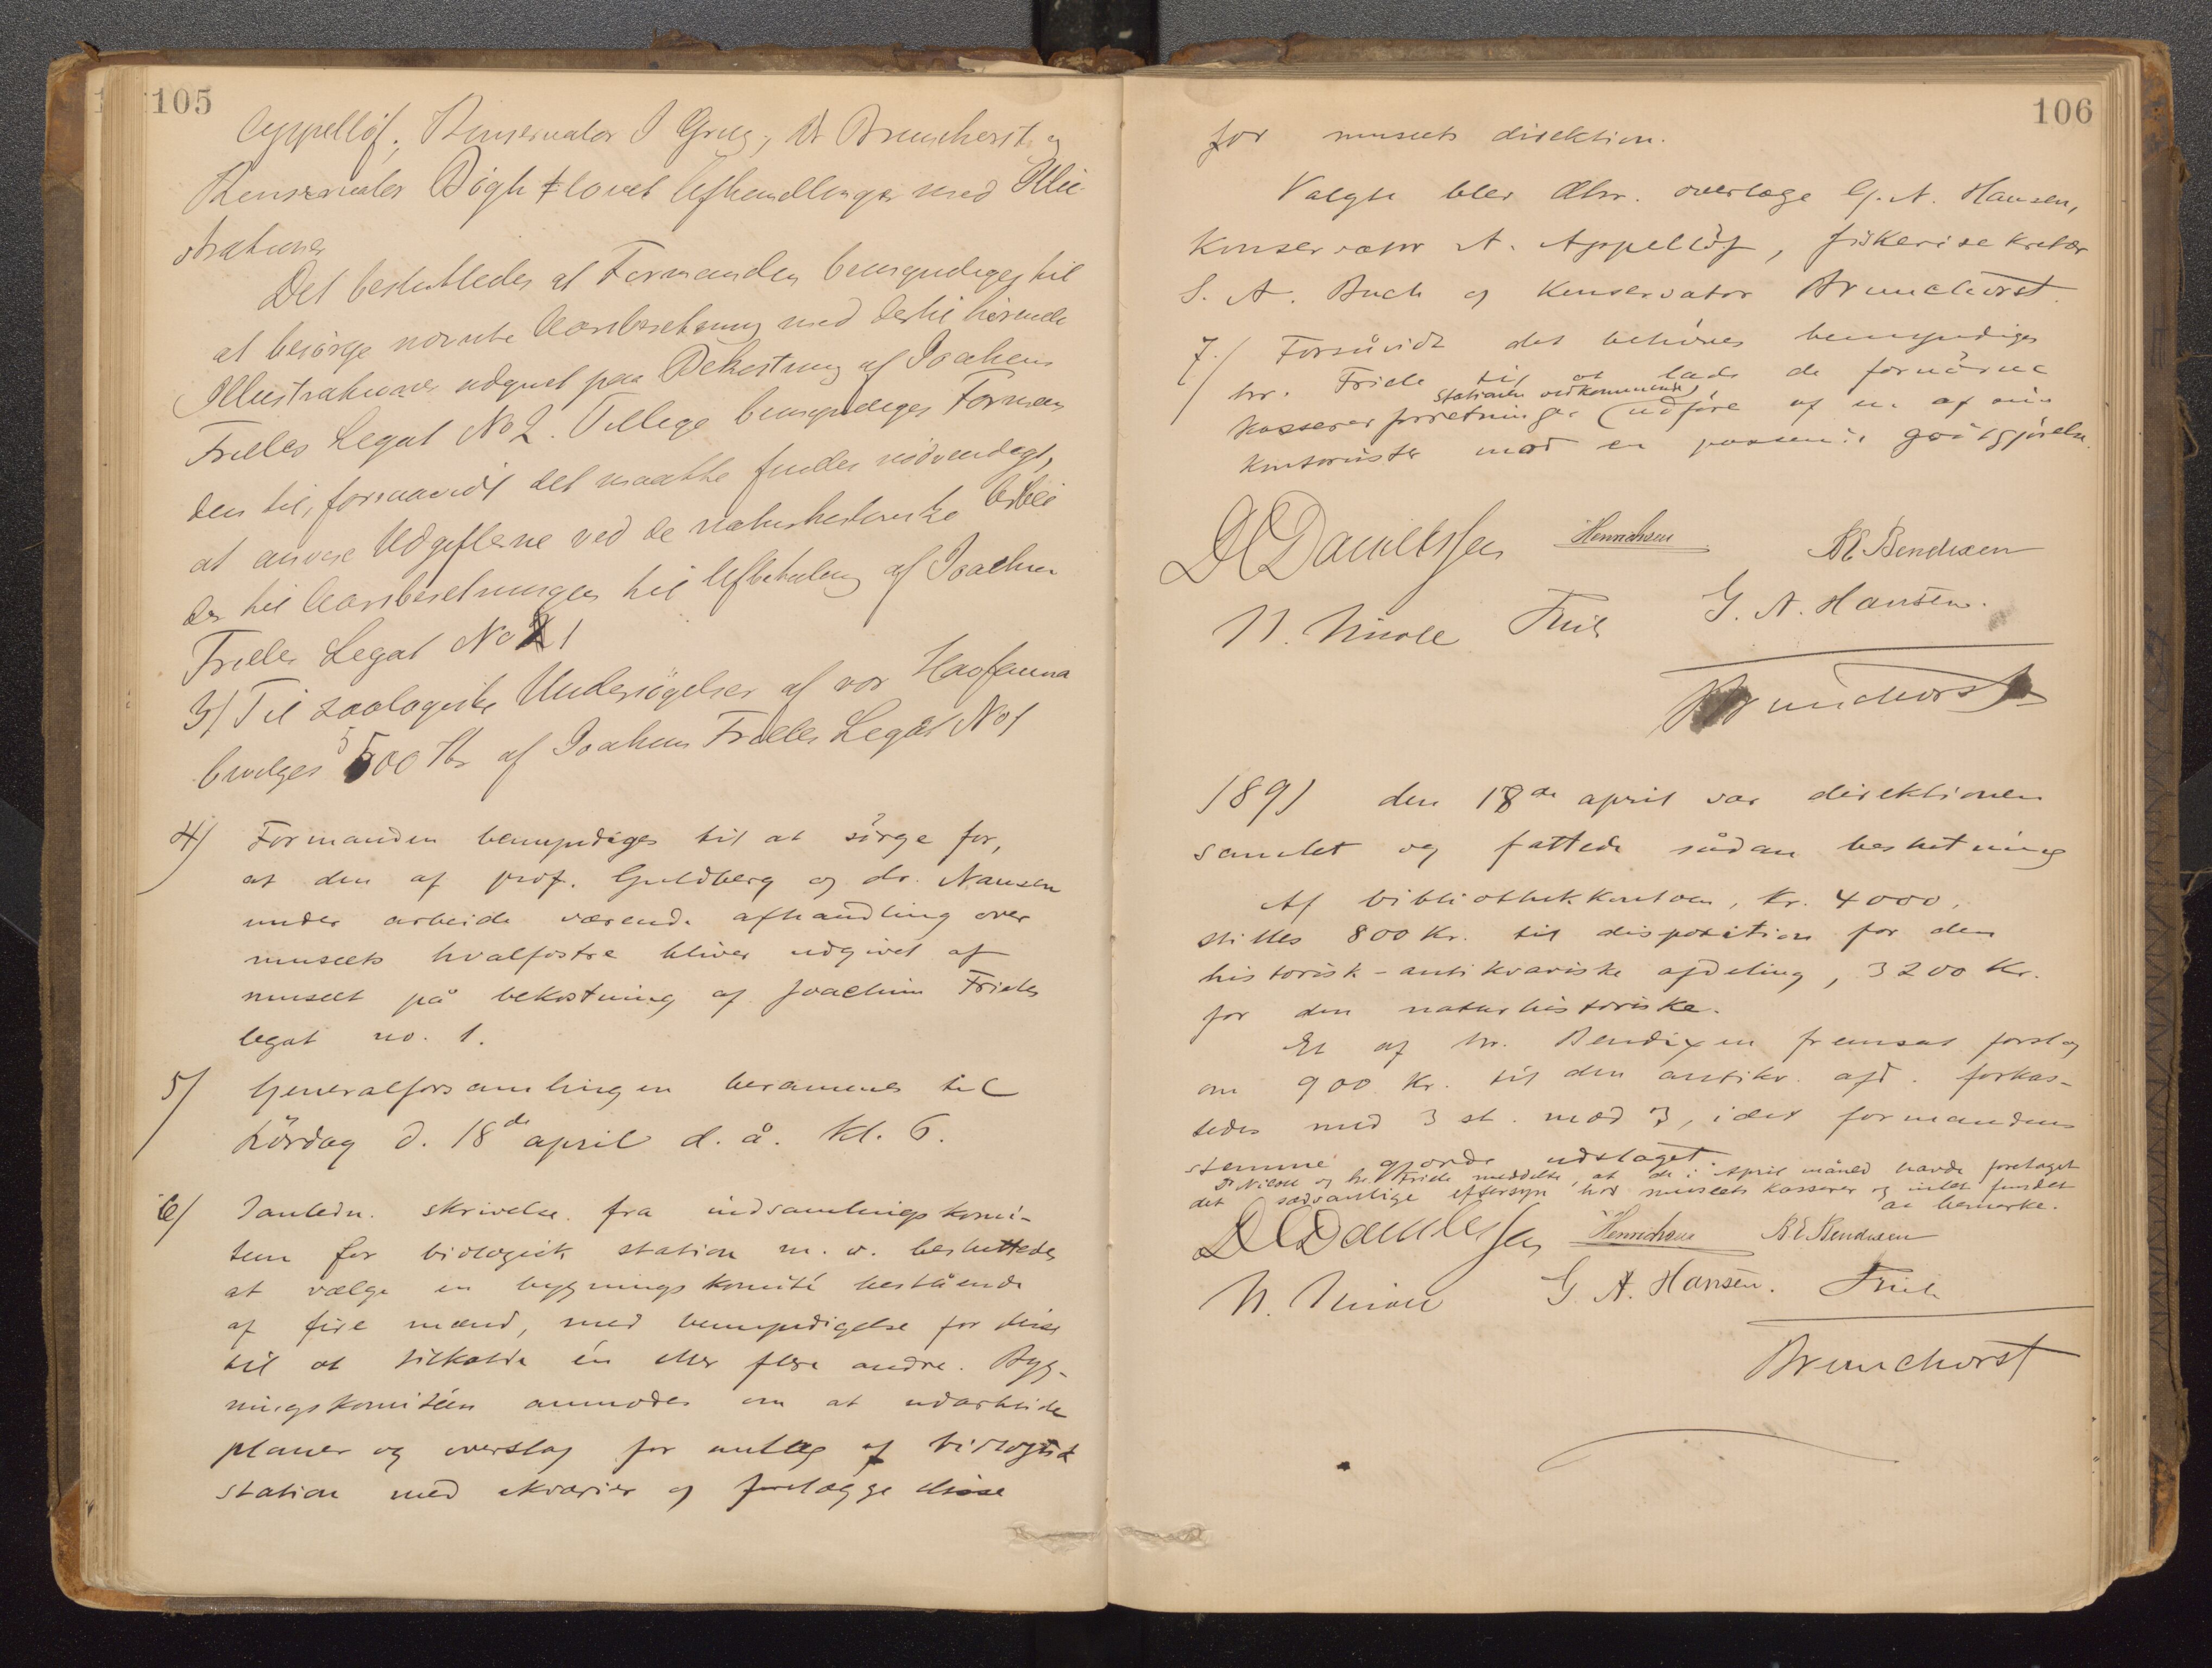 105
Appelløf, Konservator J Grieg, Dr Brunchorst og
Konservator Bøgh lovet Afhandlinger med Illu-
strationer
Det besluttedes at Formanden bemyndiges til
at besørge nævnte Aarsberetning med dertil hørende
Illustrationer udgivet paa Bekostning af Joachim
Frieles Legat No 2. Tillige bemyndiges Forman
den til, forsaavidt det maatte findes nødvendigt,
at anvise Udgifterne ved de naturhistoriske Arbei
der til Aarsberetningen til Udbetaling af Joachim
Frieles Legat No 1
3/ Til zoologiske Undersøgelser af vor Havfauna
bruges 500 Kr af Joachim Frieles Legat No 1
4/ Formanden bemyndiges til at sörge for,
at den af prof. Guldberg og dr. Nansen
under arbeide værende afhandling over
museets hvalfostre bliver udgivet af
museet på bekostning af Joachim Frieles
legat no. 1.
5/ Generalforsamlingen berammes til
Lördag d. 18de april d. å. kl. 6.
6/ I anledn. skrivelse fra indsamlingskomi-
teen for biologisk station m. v. besluttedes
at vælge en bygningskomité bestående
af fire mænd, med bemyndigelse for disse
til at tilkalde én eller flere andre. Byg-
ningskomitéen anmodes om at udarbeide
planer og overslag for anlæg af biologisk
station med akvarier og forelægge disse
106
for museets direktion.
Valgte blev dhrr. overlæge G. A. Hansen,
Konservator A. Appellöf, fiskerisekretær
S. A. Buch og Konservator Brunchorst.
7./ Forsåvidt det behöves bemyndiges
hr. Friele til at lade de fornödne
stationen vedkommende,
kassererforretninger udföre af en af sine
kontorister mod en passende godtgjörelse.
D C Danielssen Henrichsen B E Bendixen
N. Nicoll Friele G. A. Hansen.
Brunchorst
1891 den 18de april var direktionen
samlet og fattede sådan beslutning
Af bibliothekkontoen, kr. 4000,
stilles 800 Kr. til disposition for den
historisk-antikvariske afdeling, 3200 Kr.
for den naturhistoriske.
Et af hr. Bendixen fremsat forslag
om 900 Kr. til den antikv. afd. forkas-
tedes med 3 st. mod 3, idet formandens
stemme gjorde udslaget.
Dr Nicoll og hr. Friele meddelte, at de i April måned havde foretaget
det sædvanlige eftersyn hos museets kasserer og intet fundet
at bemerke.
D C Danielssen Henrichsen B. E. Bendixen
N. Nicoll G A. Hansen. Friele
Brunchorst